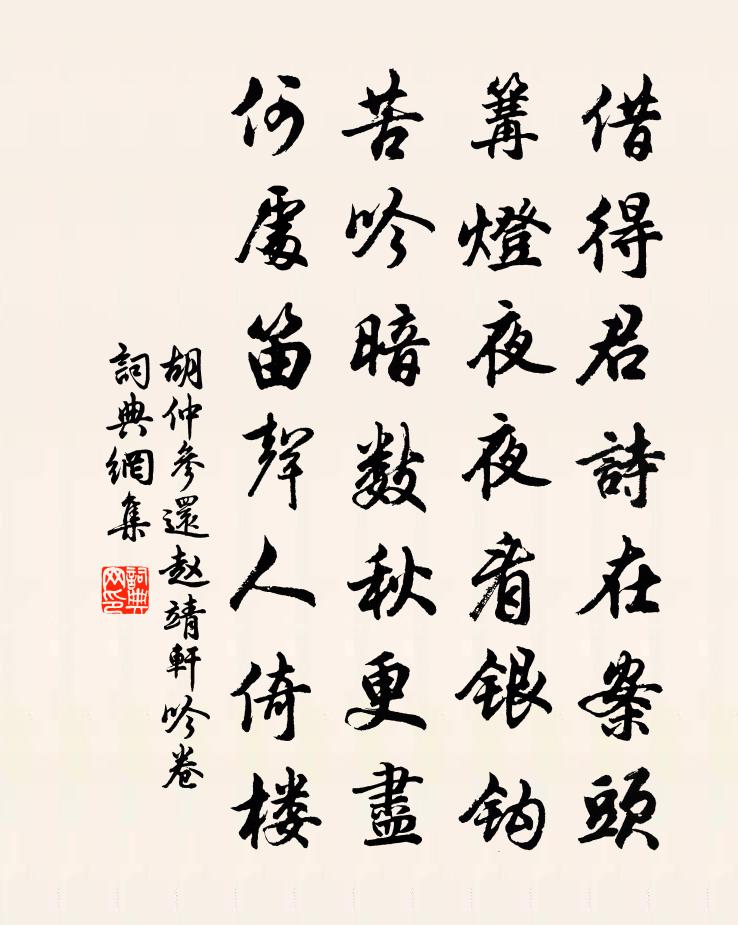 借得君詩在案頭
篝燈夜夜看银鈎
苦吟暗数秋更盡
何處笛聲人倚楼
胡仲參還赵靖軒吟卷
詞典網集
詞典網印